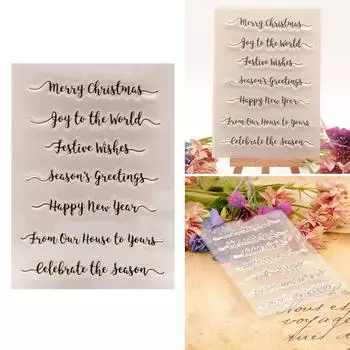 Merry Christmas
Joy to the World
Festive Wishes
Season's Greetings
Happy New Year
From Our House to Yours
Celebrate the Season
Merry Christmas
Joy to the World
Festive Wishes
Season's Greetings
Happy New Year
From Our House to Yours
Celebrate the Season